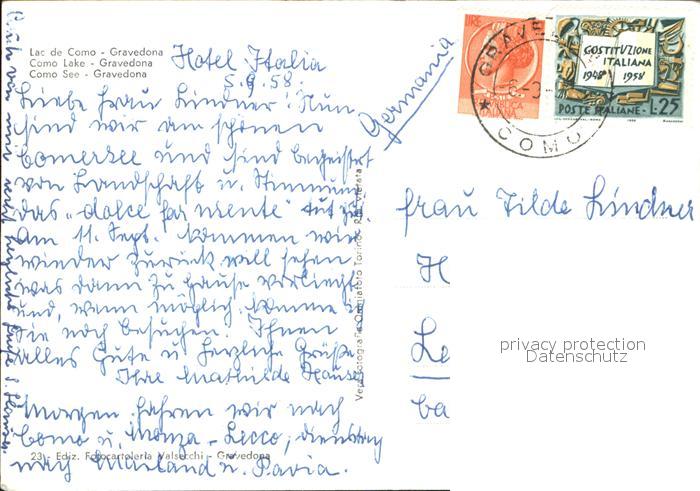 Lac de Como - Gravedona
Como Lake - Gravedona
Como See - Gravedona
Hotel Italia
5.9.58.
Liebe Frau Lindner! Nun
sind wir am schönen
Comersee und sind begeistert
von Landschaft u. Stimmung
das "dolce far niente" tut gut.
Am 11. Sept. kommen wir
wieder zurück will sehen,
was dann zu Hause vorliegt
und, wenn möglich, komme ich
Sie noch besuchen. Ihnen
alles Gute u. herzliche Grüße
Ihre Mathilde Hauser
Morgen fahren wir nach
Como u. Monza - Lecco, Dienstag
nach Mailand u. Pavia.
Auch von mir recht herzliche Grüße
23 - Ediz. Fotocartoleria Valsecchi - Gravedona
Vera Fotografia
Torino
Germania
LIRE
ITALIANA
GRAVEDONA
COMO
COSTITUZIONE
ITALIANA
1948 1958
POSTE ITALIANE L.25
Frau Tilde Lindner
H
Le
ba
privacy protection
Datenschutz